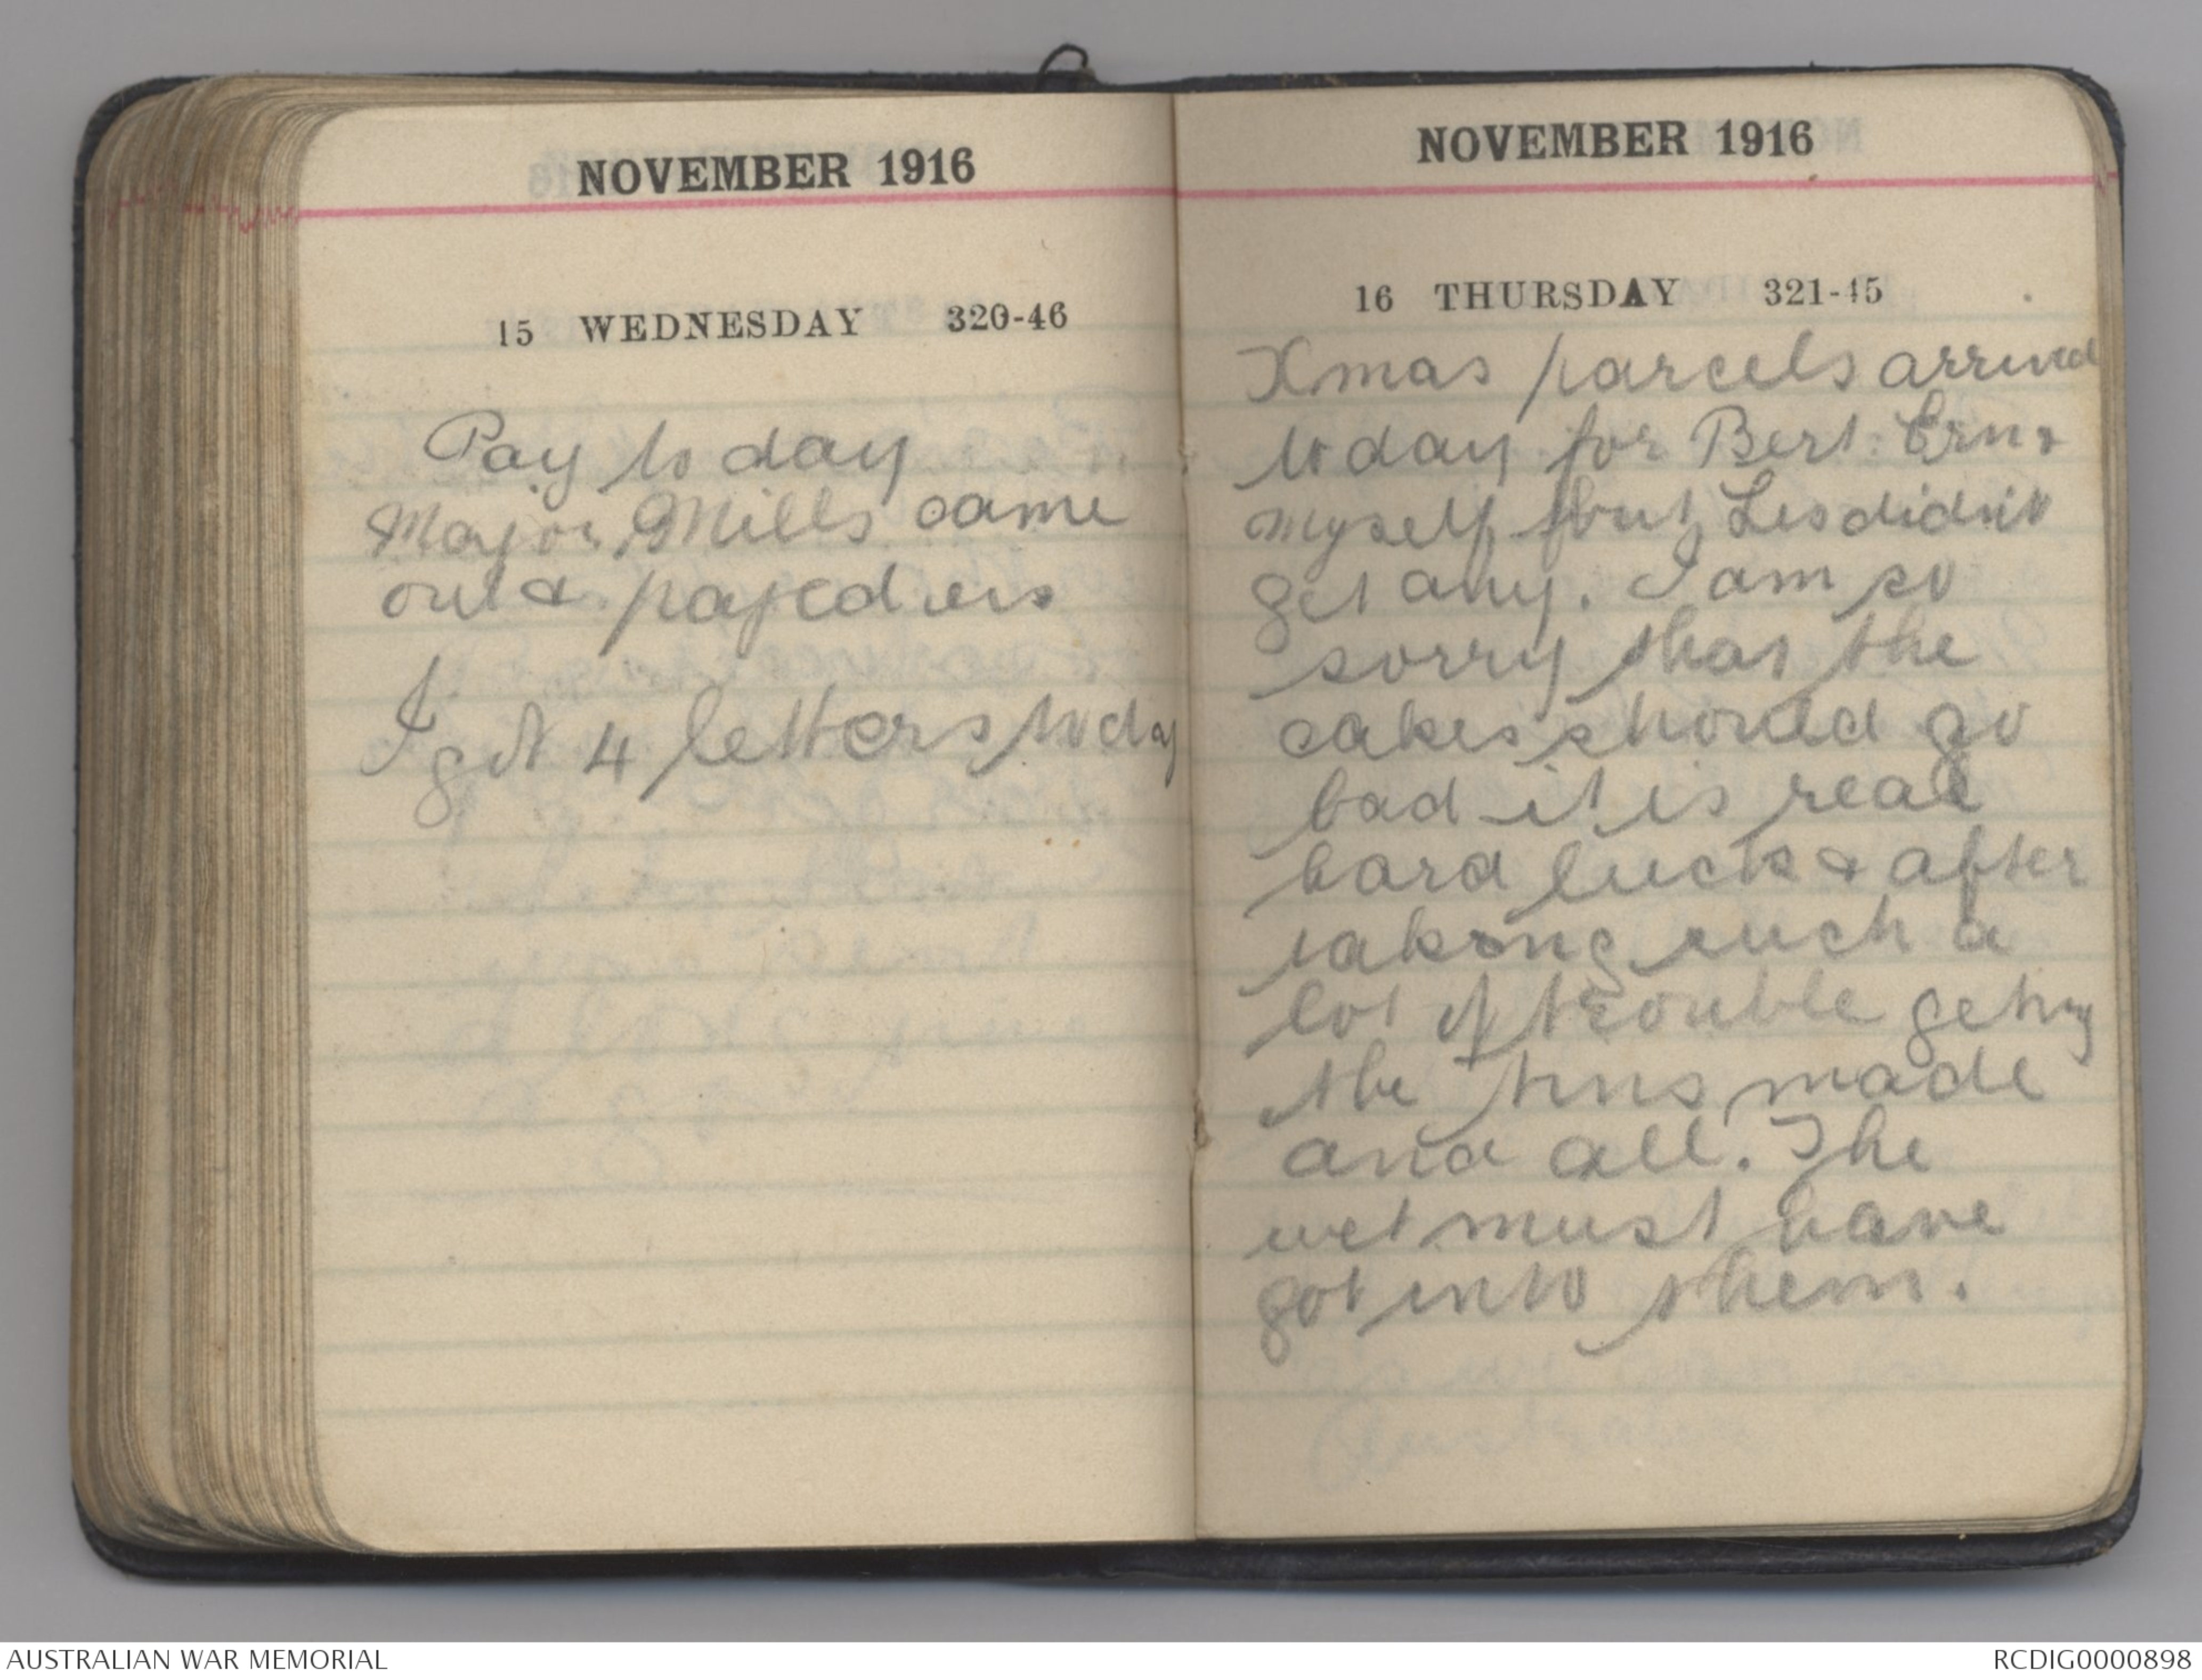 NOVEMBER 1916
15 WEDNESDAY 320-46
Pay to day
Major Mills came
out & payed us
I got 4 letters today
NOVEMBER 1916
16 THURSDAY 321-45
Xmas parcels arrived
to day for Bert. Ern &
myself but Les didn't
get any. I am so
sorry that the
cakes should go
bad it is real
hard luck & after
taking such a
lot of trouble geting
the tins made
and all. The
wet must have
got into them.
AUSTRALIAN WAR MEMORIAL
RCDIG0000898